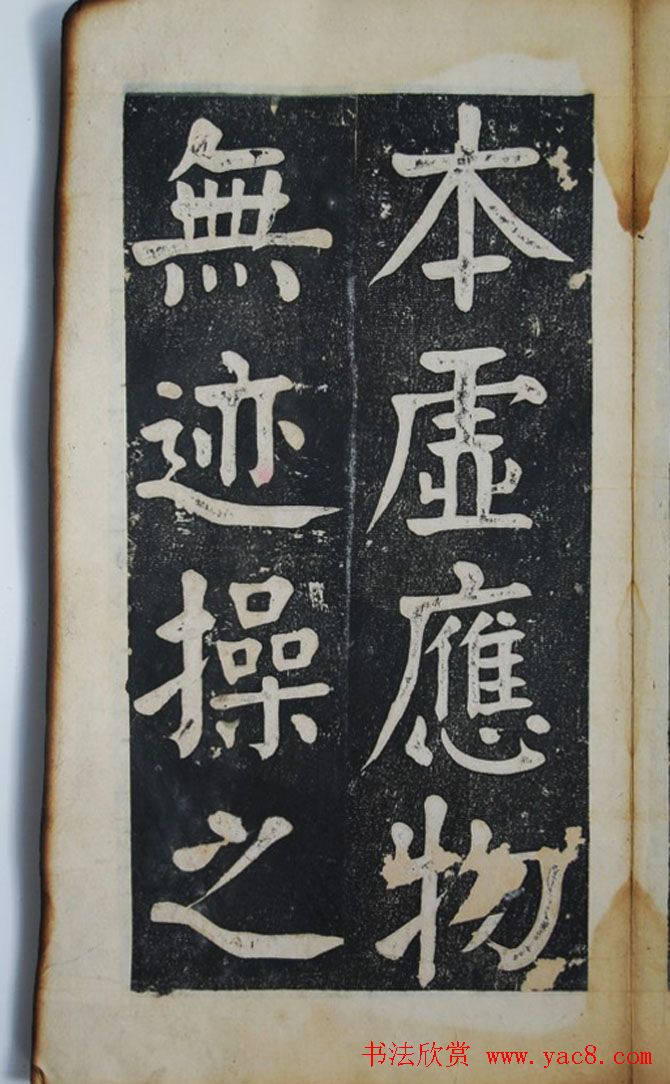 本虛應物
無迹操之
书法欣赏 www.yac8.com